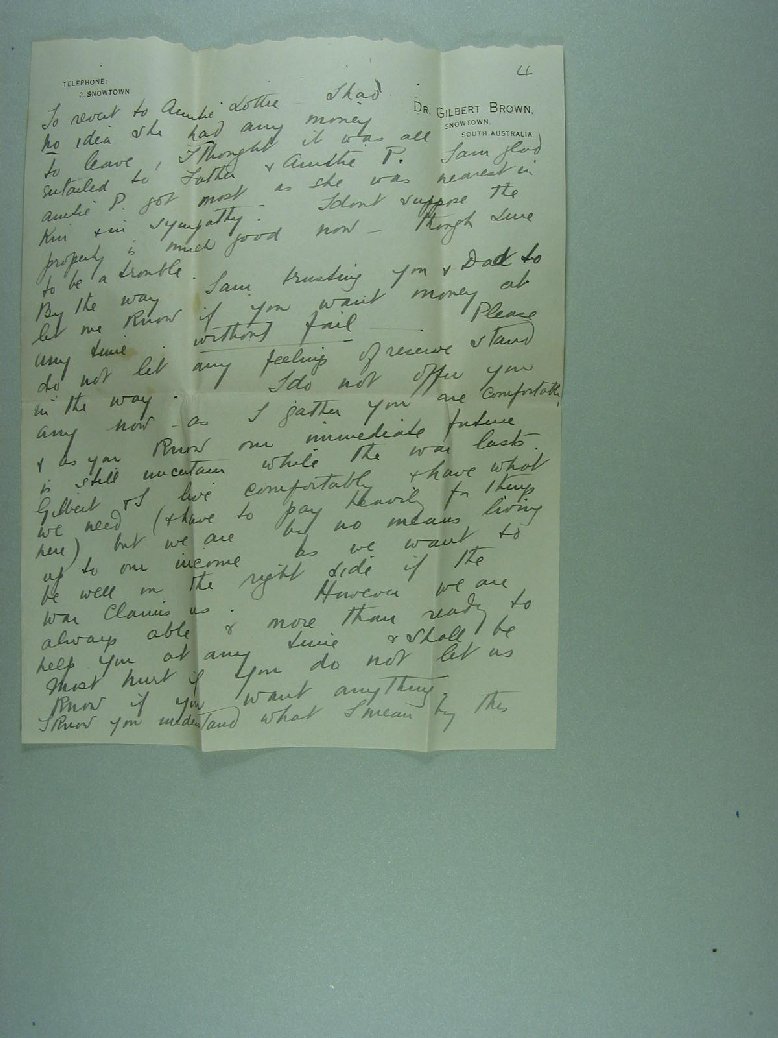 TELEPHONE:
2 SNOWTOWN
4
DR. GILBERT BROWN,
SNOWTOWN,
SOUTH AUSTRALIA
To revert to Auntie Lottie - I had
no idea she had any money
to leave, I thought it was all
entailed to Father & Auntie P. I am glad
auntie P. got most as she was nearest in
Kin & in sympathy. I dont suppose the
property is much good now - though sure
to be a trouble.
By the way I am trusting you & Dad to
let me know if you want money at
any time without fail. Please
do not let any feelings of reserve stand
in the way. I do not offer you
any now - as I gather you are comfortable
& as you know our immediate future
is still uncertain while the war lasts.
Gilbert & I live comfortably & have what
we need (& have to pay heavily for things
here) but we are by no means living
up to our income as we want to
be well on the right side if the
war claims us. However we are
always able & more than ready to
help you at any time & shall be
most hurt if you do not let us
know if you want anything.
I know you understand what I mean by this